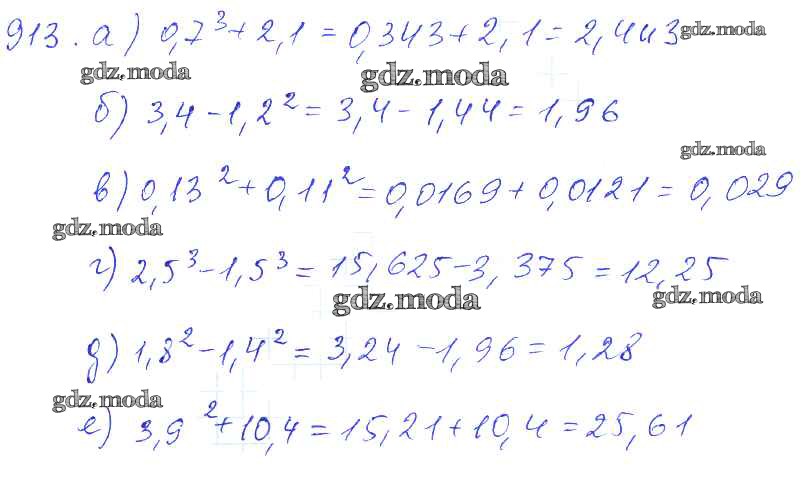 913. а) 0,7³ + 2,1 = 0,343 + 2,1 = 2,443 gdz.moda
gdz.moda gdz.moda
б) 3,4 - 1,2² = 3,4 - 1,44 = 1,96
gdz.moda
в) 0,13² + 0,11² = 0,0169 + 0,0121 = 0,029
gdz.moda
г) 2,5³ - 1,5³ = 15,625 - 3,375 = 12,25
gdz.moda gdz.moda
д) 1,8² - 1,4² = 3,24 - 1,96 = 1,28
gdz.moda
е) 3,9² + 10,4 = 15,21 + 10,4 = 25,61